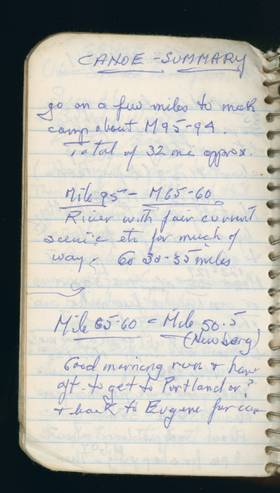 CANOE - SUMMARY
go on a few miles to make
camp about M95-94.
Total of 32 mi approx.
Mile 95 - M65-60.
River with fair current
scenic etc for much of
way. Go 30-35 miles
Mile 65-60 - Mile 50.5
(Newberg)
Good morning run + have
aft. to get to Portland or?
+ back to Eugene for car